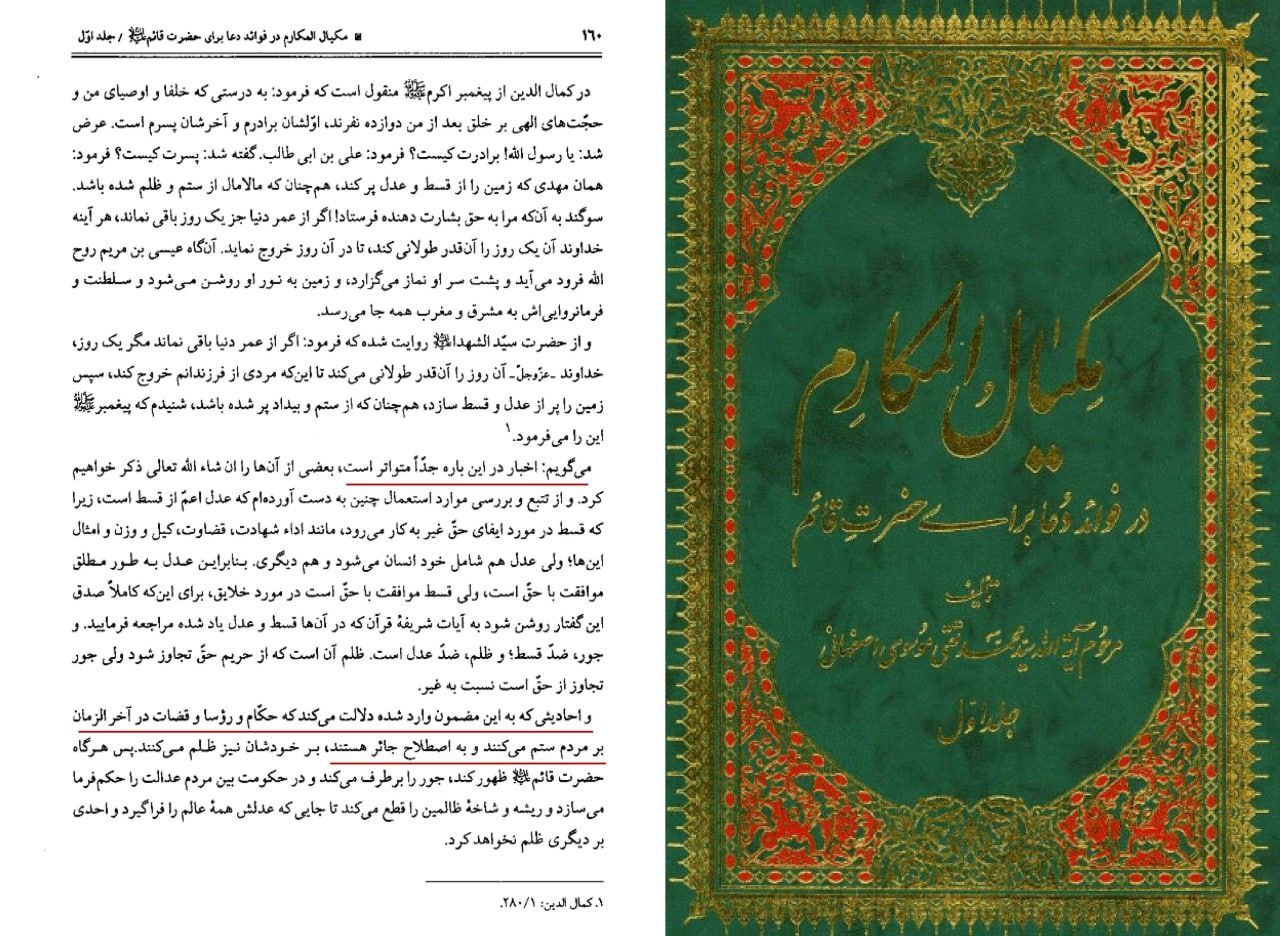 ۱۶۰ مکیال المکارم در فوائد دعا برای حضرت قائم علیه‌السلام / جلد اوّل
در کمال الدین از پیغمبر اکرمﷺ منقول است که فرمود: به درستی که خلفا و اوصیای من و
حجّت‌های الهی بر خلق بعد از من دوازده نفرند، اوّلشان برادرم و آخرشان پسرم است. عرض
شد: یا رسول الله! برادرت کیست؟ فرمود: علی بن ابی طالب. گفته شد: پسرت کیست؟ فرمود:
همان مهدی که زمین را از قسط و عدل پر کند، هم‌چنان که مالامال از ستم و ظلم شده باشد.
سوگند به آن‌که مرا به حق بشارت دهنده فرستاد! اگر از عمر دنیا جز یک روز باقی نماند، هر آینه
خداوند آن یک روز را آن‌قدر طولانی کند، تا در آن روز خروج نماید. آن‌گاه عیسی بن مریم روح
الله فرود می‌آید و پشت سر او نماز می‌گزارد، و زمین به نور او روشن می‌شود و سلطنت و
فرمانروایی‌اش به مشرق و مغرب همه جا می‌رسد.
و از حضرت سیّد الشهدا علیه‌السلام روایت شده که فرمود: اگر از عمر دنیا باقی نماند مگر یک روز،
خداوند ـ عزّوجلّ ـ آن روز را آن‌قدر طولانی می‌کند تا این‌که مردی از فرزندانم خروج کند، سپس
زمین را پر از عدل و قسط سازد، هم‌چنان که از ستم و بیداد پر شده باشد، شنیدم که پیغمبرﷺ
این را می‌فرمود.۱
می‌گویم: اخبار در این باره جدّاً متواتر است، بعضی از آن‌ها را ان شاء الله تعالی ذکر خواهیم
کرد. و از تتبع و بررسی موارد استعمال چنین به دست آورده‌ام که عدل اعمّ از قسط است، زیرا
که قسط در مورد ایفای حقّ غیر به کار می‌رود، مانند اداء شهادت، قضاوت، کیل و وزن و امثال
این‌ها؛ ولی عدل هم شامل خود انسان می‌شود و هم دیگری. بنابراین عدل به طور مطلق
موافقت با حقّ است، ولی قسط موافقت با حقّ است در مورد خلایق، برای این‌که کاملاً صدق
این گفتار روشن شود به آیات شریفهٔ قرآن که در آن‌ها قسط و عدل یاد شده مراجعه فرمایید. و
جور، ضدّ قسط؛ و ظلم، ضدّ عدل است. ظلم آن است که از حریم حقّ تجاوز شود ولی جور
تجاوز از حقّ است نسبت به غیر.
و احادیثی که به این مضمون وارد شده دلالت می‌کند که حکّام و رؤسا و قضات در آخر الزمان
بر مردم ستم می‌کنند و به اصطلاح جائر هستند، بر خودشان نیز ظلم می‌کنند. پس هرگاه
حضرت قائم علیه‌السلام ظهور کند، جور را برطرف می‌کند و در حکومت بین مردم عدالت را حکم‌فرما
می‌سازد و ریشه و شاخهٔ ظالمین را قطع می‌کند تا جایی که عدلش همهٔ عالم را فراگیرد و احدی
بر دیگری ظلم نخواهد کرد.
۱. کمال الدین: ۲۸۰/۱.
مکیال المکارم
در فوائد دعا برای حضرت قائم
تألیف
مرحوم آیة الله سید محمد تقی موسوی اصفهانی
جلد اول